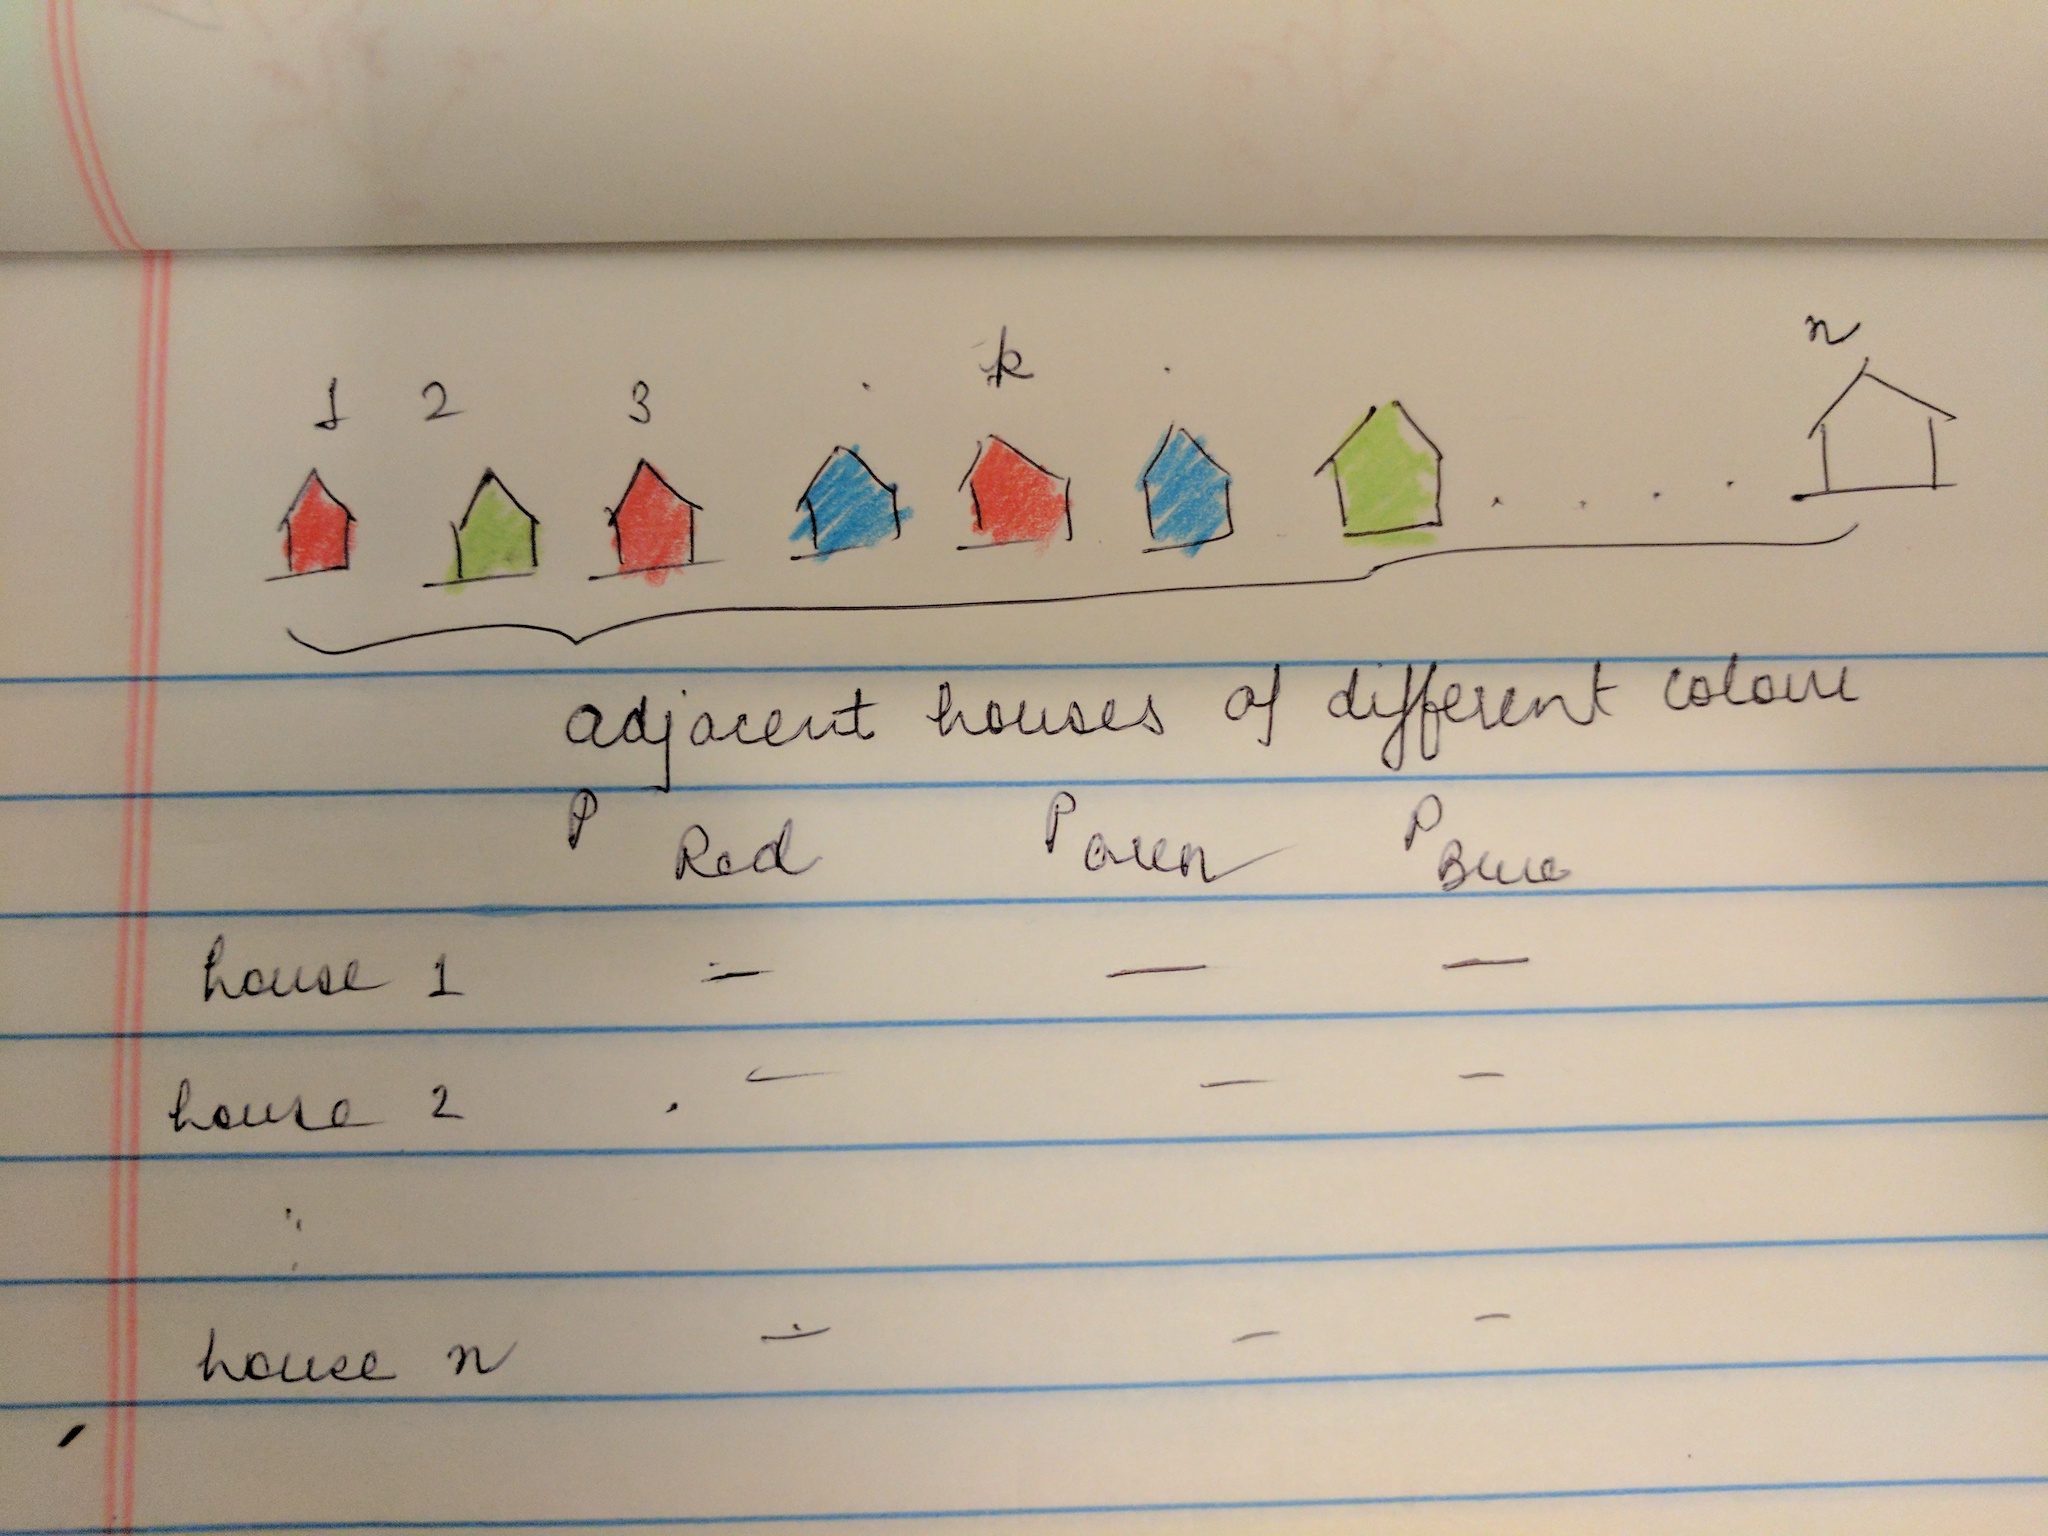 1 2 3 . k . n
. . . .
adjacent houses of different colour
P Red P Green P Blue
house 1 — — —
house 2 — — —
:
house n — — —